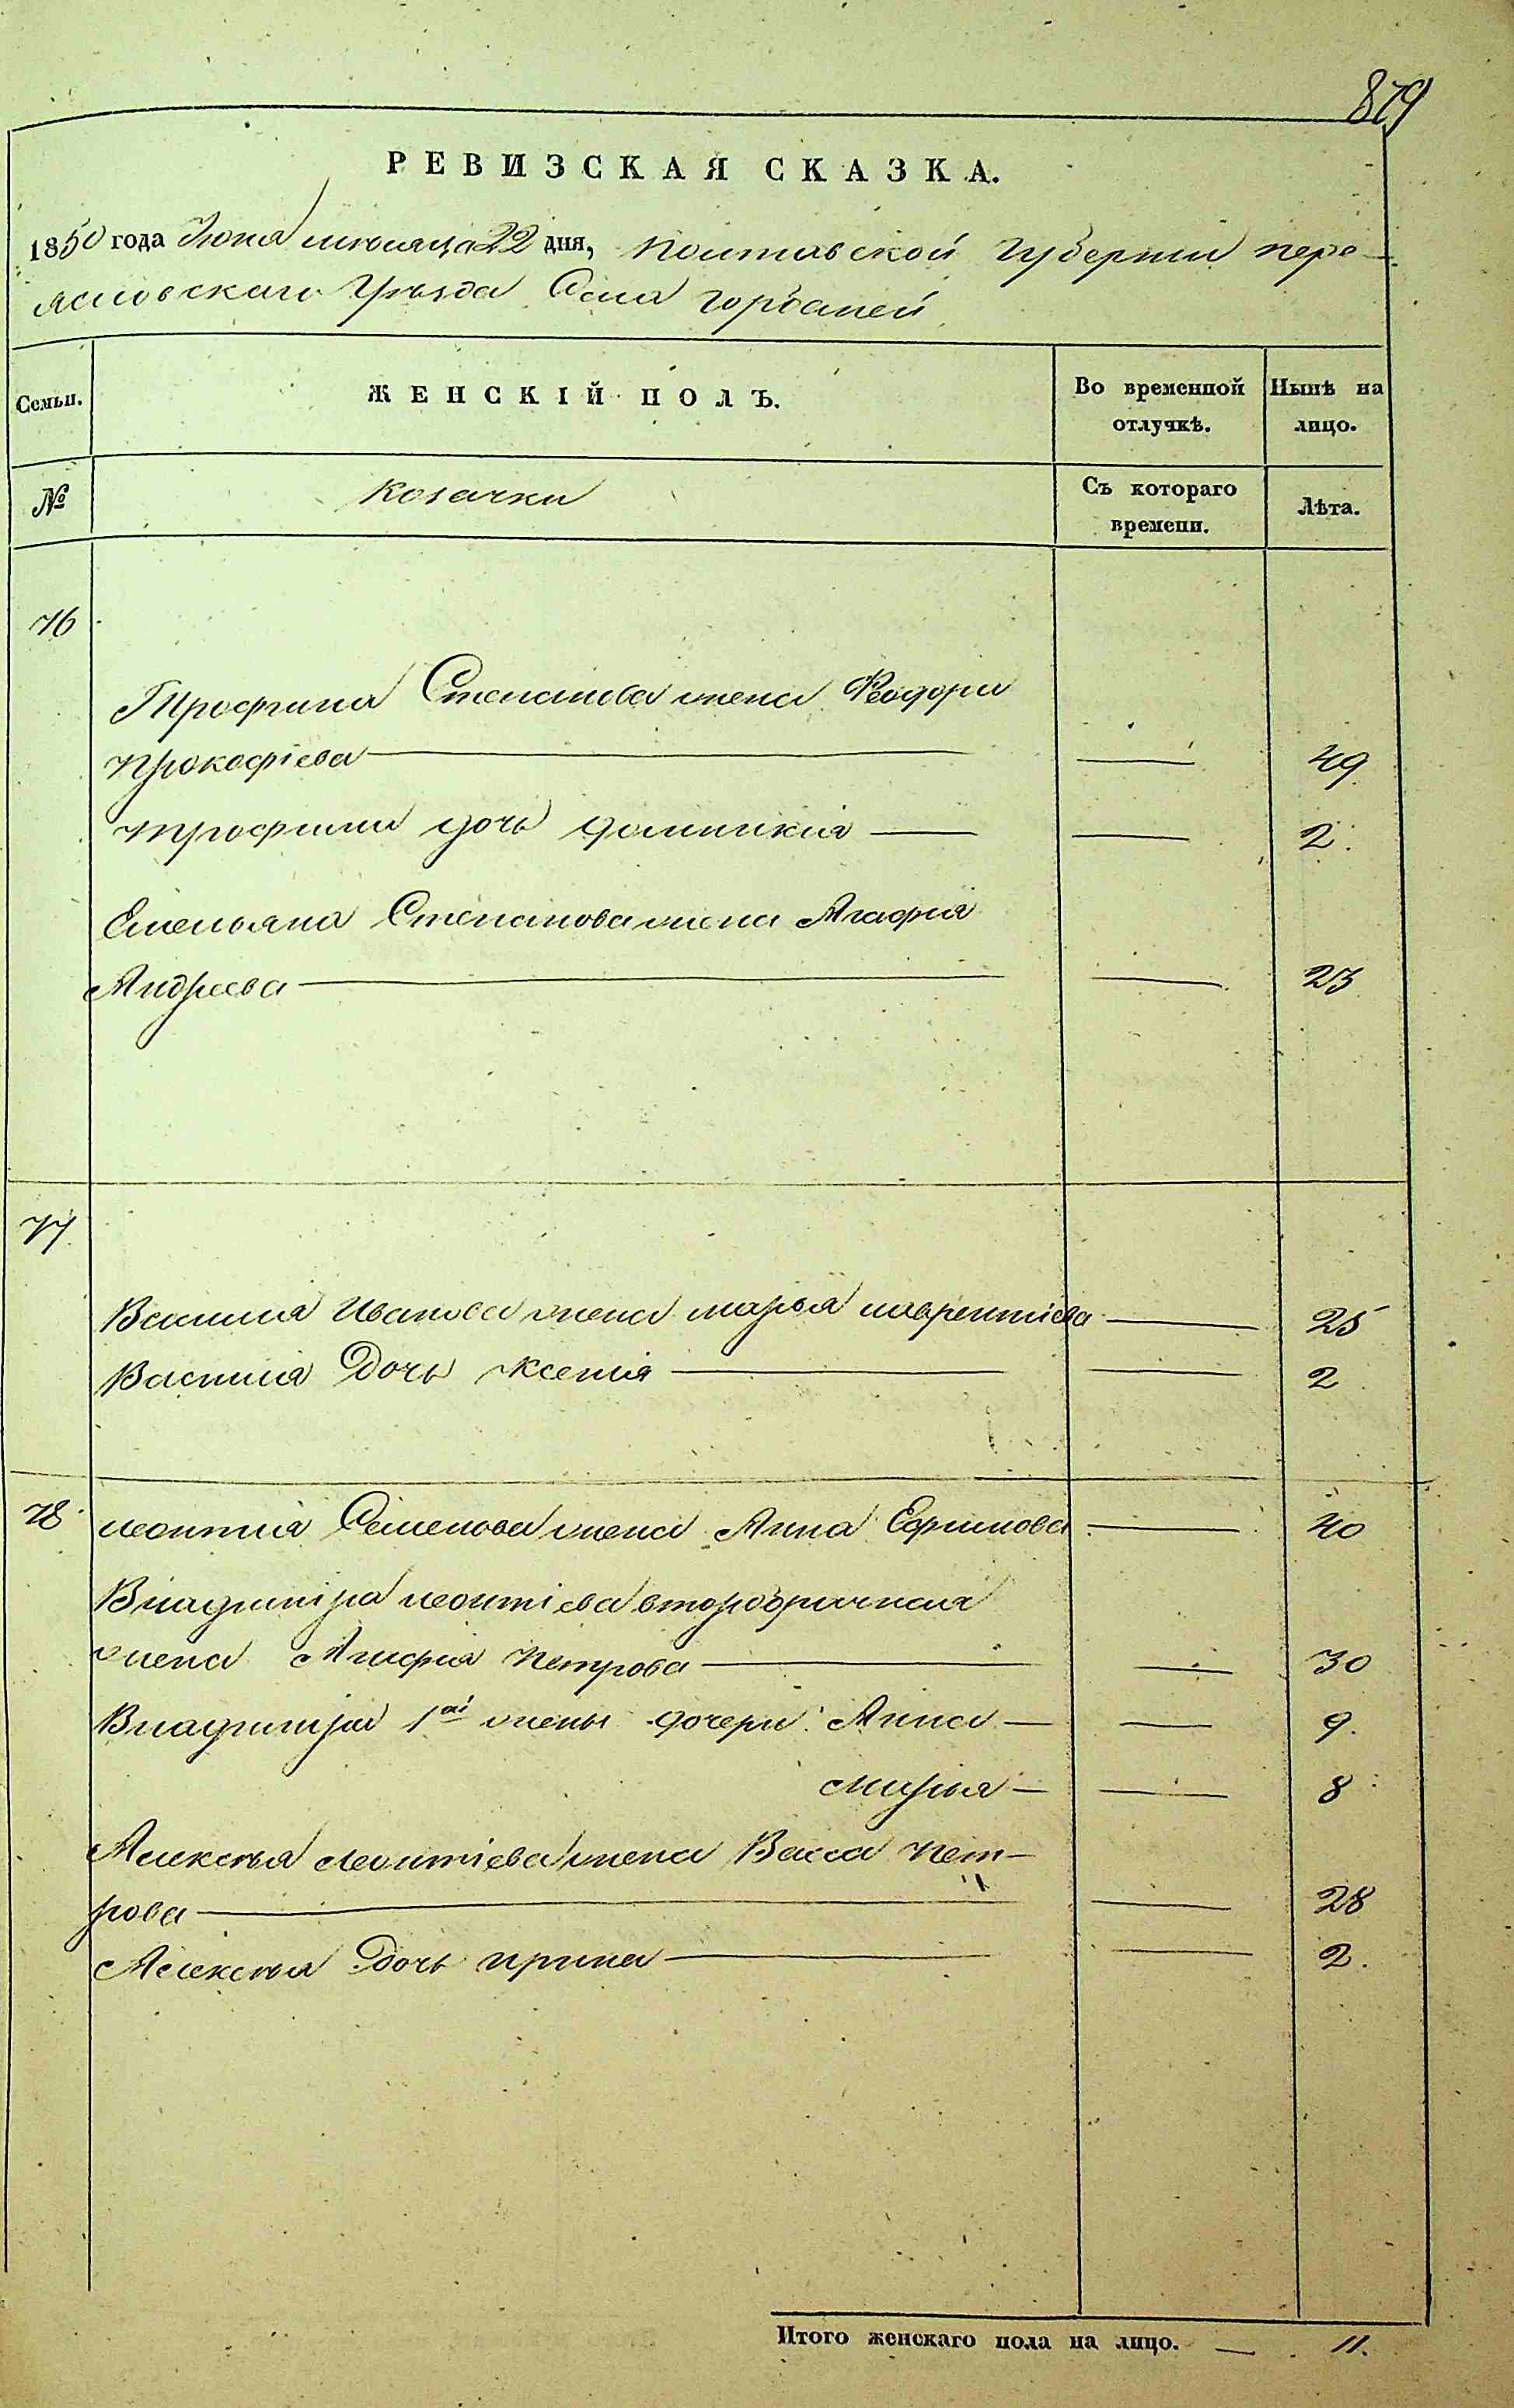 879
РЕВИЗСКАЯ СКАЗКА.
1850 года Июня месяца 22 дня, Полтавской Губернии пере-
яславскаго Уѣзда Села Горбаней
Семьи. ЖЕНСКІЙ ПОЛЪ. Во временной отлучкѣ. Нынѣ на лицо.
№ Козачки Съ котораго времени. Лѣта.
76
Трофима Степанова жена Феодора
Прокофіева — — 49
Трофима дочь Домникія — — 2
Емельяна Степанова жена Агафія
Андреева — — 23
77
Василія Иванова жена марья лаврентіева — 25
Василія Дочь Ксенія — — 2
78 леонтія Семенова жена Анна Ефимова — 40
Владиміра леонтіева второбрачная
жена Агафія Петрова — — 30
Владиміра 1ой жены дочери: Анна — — 9.
Марья — — 8
Алексѣя Леонтіева жена Васса Пет-
рова — — 28
Алексѣя Дочь ирина — — 2.
Итого женскаго пола на лицо. — 11.